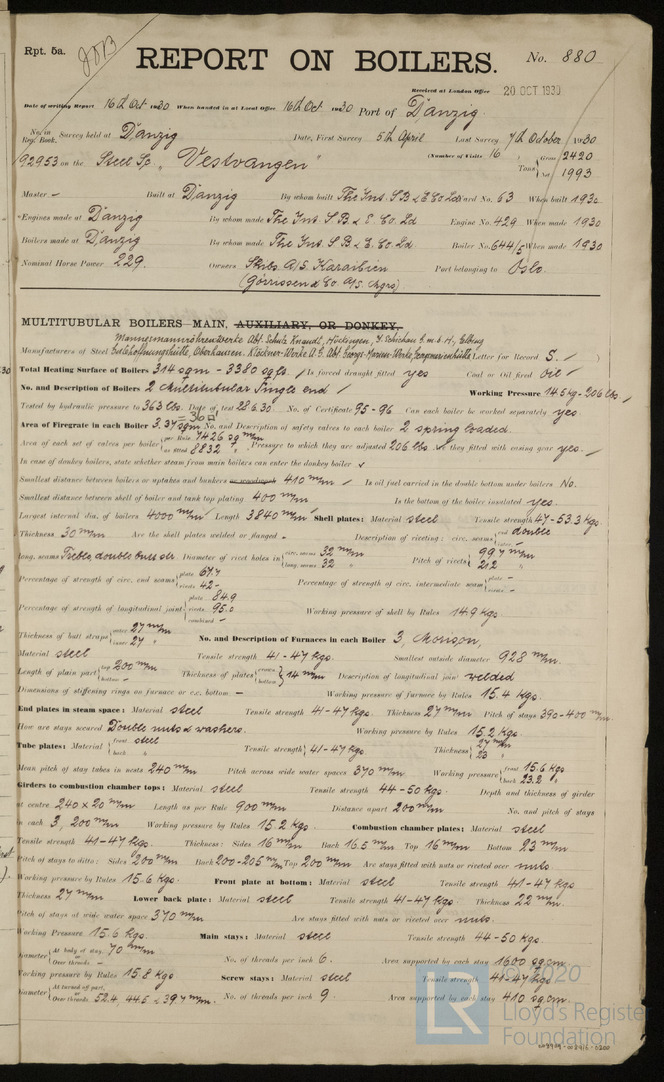 Rpt. 5a.
REPORT ON BOILERS.
No. 880
Received at London Office 20 OCT 1930
Date of writing Report 16th Oct 1930 When handed in at Local Office 16th Oct 1930 Port of Danzig
No. in Reg. Book. Survey held at Danzig Date, First Survey 5th April Last Survey 7th October 1930
(Number of Visits 16
92953 on the Steel Sc. "Vestvangen" Tons Gross 2420 Net 1993
Master – Built at Danzig By whom built The Int. S B & E Co Ltd Yard No. 63 When built 1930
Engines made at Danzig By whom made The Int. S B & E. Co. Ld Engine No. 429 When made 1930
Boilers made at Danzig By whom made The Int. S B & E. Co. Ld. Boiler No. 644/5 When made 1930
Nominal Horse Power 229. Owners Skibs A/S. Karaibien Port belonging to Oslo.
(Gørrissen & Co. A/S. Mgrs)
MULTITUBULAR BOILERS MAIN, AUXILIARY, OR DONKEY.
Mannesmannröhrenwerke Abt. Schulz Knaudt, Hückingen, F. Schichau G.m.b.H, Elbing
Manufacturers of Steel Gutehoffnungshütte, Oberhausen. Klöckner-Werke A.G. Abt. Georgs-Marien-Werke, Georgsmarienhütte Letter for Record S.
Total Heating Surface of Boilers 314 sqm – 3380 sq fs. Is forced draught fitted yes Coal or Oil fired oil
No. and Description of Boilers 2 Multitubular Single end Working Pressure 14.5 kg - 206 lbs
Tested by hydraulic pressure to 363 lbs. Date of test 28 6 30 No. of Certificate 95-96 Can each boiler be worked separately yes
Area of Firegrate in each Boiler 3.37 sqm No. and Description of safety valves to each boiler 2 spring loaded.
Area of each set of valves per boiler per Rule 7426 sq mm as fitted 8832 " Pressure to which they are adjusted 206 lbs Are they fitted with easing gear yes.
In case of donkey boilers, state whether steam from main boilers can enter the donkey boiler
Smallest distance between boilers or uptakes and bunkers or woodwork 410 m/m Is oil fuel carried in the double bottom under boilers No.
Smallest distance between shell of boiler and tank top plating 400 m/m Is the bottom of the boiler insulated yes.
Largest internal dia. of boilers 4000 m/m Length 3840 m/m Shell plates: Material steel Tensile strength 47-53.3 kgs
Thickness 30 m/m Are the shell plates welded or flanged – Description of riveting: circ. seams end double inter. –
long. seams Treble, double butt str. Diameter of rivet holes in circ. seams 32 m/m long. seams 32 " Pitch of rivets 99.7 m/m 212 "
Percentage of strength of circ. end seams plate 67.4 rivets 42 – Percentage of strength of circ. intermediate seam plate – rivets –
Percentage of strength of longitudinal joint plate 84.9 rivets 95.0 combined – Working pressure of shell by Rules 14.9 kgs
Thickness of butt straps outer 27 m/m inner 27 " No. and Description of Furnaces in each Boiler 3, Morison,
Material steel Tensile strength 41-47 kgs. Smallest outside diameter 928 m/m.
Length of plain part top 200 m/m bottom – Thickness of plates crown bottom 14 m/m Description of longitudinal joint welded
Dimensions of stiffening rings on furnace or c.c. bottom – Working pressure of furnace by Rules 15.4 kgs.
End plates in steam space: Material steel Tensile strength 41-47 kgs. Thickness 27 m/m Pitch of stays 390-400 m/m
How are stays secured Double nuts & washers. Working pressure by Rules 15.2 kgs.
Tube plates: Material front steel back " Tensile strength 41-47 kgs. Thickness 27 m/m 23 "
Mean pitch of stay tubes in nests 240 m/m Pitch across wide water spaces 370 m/m Working pressure front 15.6 kgs back 23.2 "
Girders to combustion chamber tops: Material steel Tensile strength 44-50 kgs. Depth and thickness of girder
at centre 240 x 20 m/m Length as per Rule 900 m/m Distance apart 200 m/m No. and pitch of stays
in each 3, 200 m/m Working pressure by Rules 15.2 kgs. Combustion chamber plates: Material steel
Tensile strength 41-47 kgs. Thickness: Sides 16 m/m Back 16.5 m/m Top 16 m/m Bottom 23 m/m
Pitch of stays to ditto: Sides 200 m/m Back 200-205 m/m Top 200 m/m Are stays fitted with nuts or riveted over nuts.
Working pressure by Rules 15.6 kgs. Front plate at bottom: Material steel Tensile strength 41-47 kgs
Thickness 27 m/m Lower back plate: Material steel Tensile strength 41-47 kgs Thickness 22 m/m.
Pitch of stays at wide water space 370 m/m Are stays fitted with nuts or riveted over nuts.
Working Pressure 15.6 kgs. Main stays: Material steel Tensile strength 44-50 kgs.
Diameter At body of stay, or Over threads 70 m/m – No. of threads per inch 6. Area supported by each stay 1600 sqcm.
Working pressure by Rules 15.8 kgs Screw stays: Material steel Tensile strength 41-47 kgs
Diameter At turned off part, or Over threads 52.4 44.5 & 39.7 m/m. No. of threads per inch 9. Area supported by each stay 410 sqcm.
© 2020
LR
Lloyd's Register
Foundation